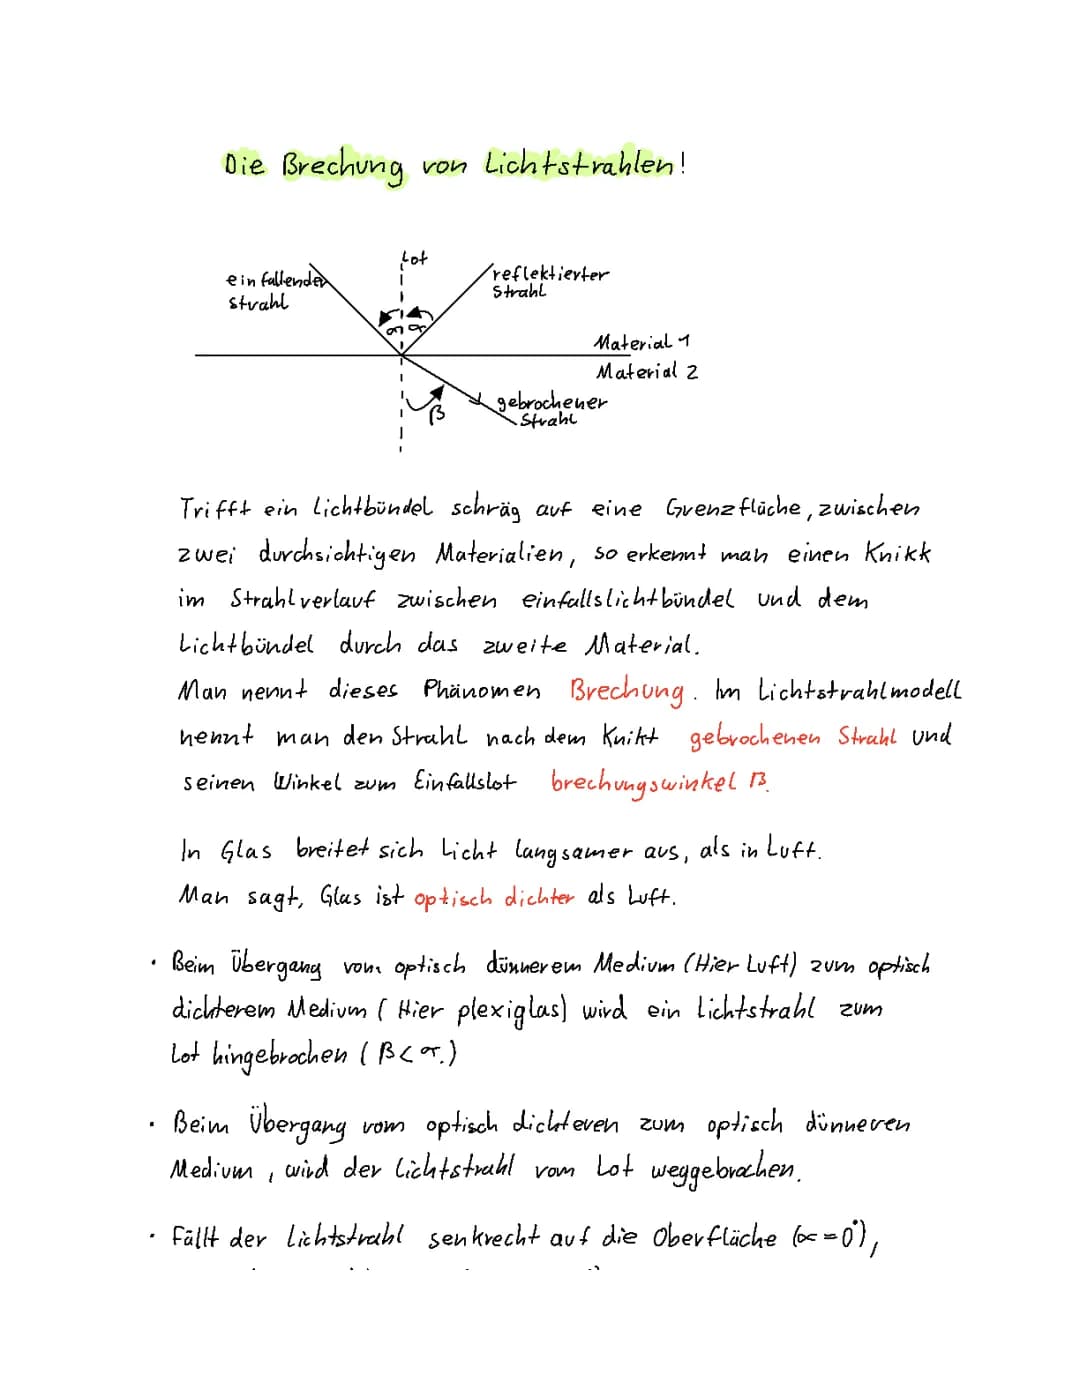 Die Brechung von Lichtstrahlen!
Lot
einfallender
Strahl
reflektierter
Strahl
α α
Material 1
Material 2
gebrochener
Strahl
β
Trifft ein Lichtbündel schräg auf eine Grenzfläche, zwischen
zwei durchsichtigen Materialien, so erkennt man einen Knikk
im Strahlverlauf zwischen einfallslichtbündel und dem
Lichtbündel durch das zweite Material.
Man nennt dieses Phänomen Brechung. Im Lichtstrahlmodell
nennt man den Strahl nach dem Knikt gebrochenen Strahl und
seinen Winkel zum Einfallslot brechungswinkel β.
In Glas breitet sich Licht langsamer aus, als in Luft.
Man sagt, Glas ist optisch dichter als Luft.
• Beim Übergang vom optisch dünnerem Medium (Hier Luft) zum optisch
dichterem Medium (Hier plexiglas) wird ein Lichtstrahl zum
Lot hingebrochen (β<α.)
• Beim Übergang vom optisch dichteren zum optisch dünneren
Medium, wird der Lichtstrahl vom Lot weggebrochen.
• Fällt der Lichtstrahl senkrecht auf die Oberfläche (α=0°),